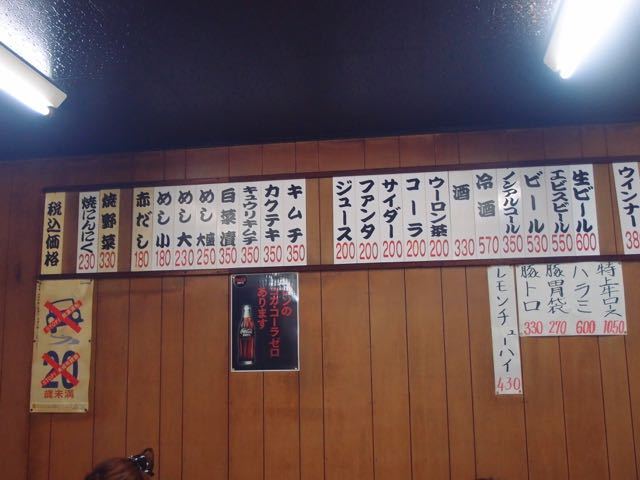 ウインナ
38
生ビール
600
エビスビール
550
ビール
530
ノンアルコール
350
冷酒
570
酒
330
ウーロン茶
200
コーラ
200
サイダー
200
ファンタ
200
ジュース
200
キムチ
350
カクテキ
350
キュウリキムチ
350
白菜漬
350
めし大盛
250
めし大
230
めし小
180
赤だし
180
焼野菜
330
焼にんにく
230
税込価格
特上ロース
1050
ハラミ
600
豚胃袋
270
豚トロ
330
レモンチューハイ
430
ビンの
コカ・コーラゼロ
あります
20
歳未満